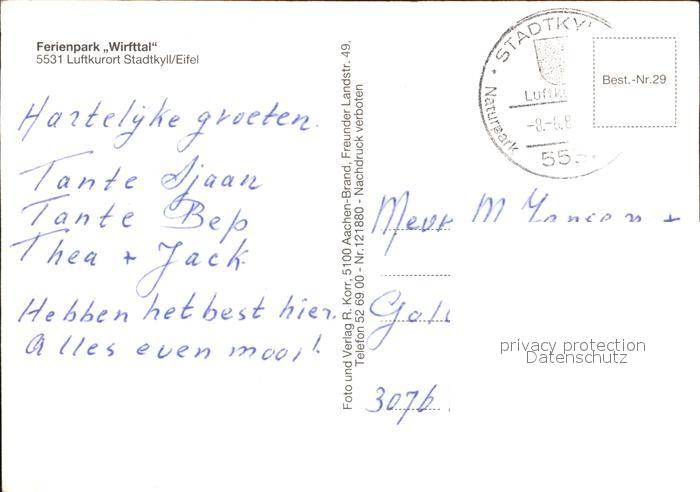 Ferienpark „Wirfttal“
5531 Luftkurort Stadtkyll/Eifel
Hartelijke groeten.
Tante Sjaan
Tante Bep
Thea + Jack
Hebben het best hier.
Alles even mooi!
Foto und Verlag R. Korr, 5100 Aachen-Brand, Freunder Landstr. 49,
Telefon 52 69 00 - Nr.121880 - Nachdruck verboten
STADTKY
Luftk
-8.-6.8
Naturpark
55
Best.-Nr.29
Mevr M Jansen +
3076
privacy protection
Datenschutz